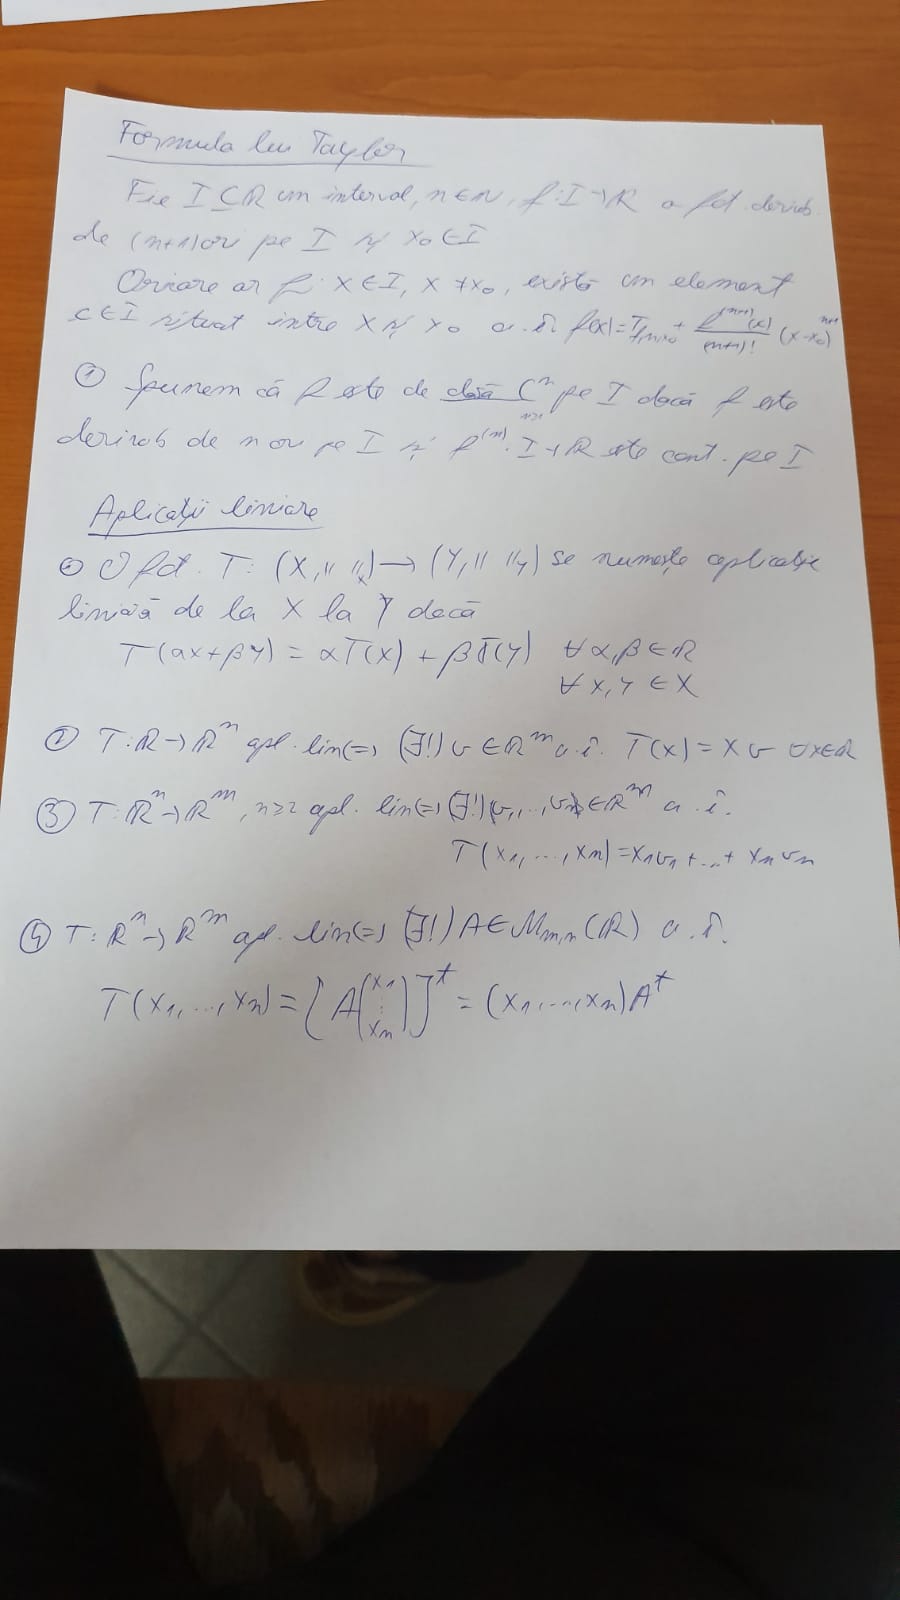 Formula lui Taylor
Fie I ⊆ R un interval, n∈N, f: I→R o fct. derivab.
de (n+1) ori pe I și x₀ ∈ I
Oricare ar fi x ∈ I, x ≠ x₀, există un element
c∈I situat între x și x₀ a. î. f(x) = T_f,n,x₀ + f⁽ⁿ⁺¹⁾(c)/(n+1)! (x-x₀)ⁿ⁺¹
① Spunem că f este de clasă Cⁿ pe I dacă f este
n≥1
derivab de n ori pe I și f⁽ⁿ⁾: I→R este cont. pe I
Aplicații liniare
O fct. T: (X, || ||ₓ) → (Y, || ||_Y) se numește aplicație
liniară de la X la Y dacă
T(αx+βy) = αT(x) + βT(y) ∀ α,β ∈ R
∀ x,y ∈ X
② T: R→Rᵐ apl. lin (=) (∃!) v ∈ Rᵐ a. î. T(x) = x v ∀x∈R
③ T: Rⁿ→Rᵐ, n≥2 apl. lin (=) (∃!) v₁,...,vₙ ∈ Rᵐ a. î.
T(x₁, ..., xₙ) = x₁v₁ + ... + xₙvₙ
④ T: Rⁿ→Rᵐ apl. lin (=) (∃!) A∈M_m,n(R) a. î.
T(x₁, ..., xₙ) = [A(x₁ ⋮ xₙ)]ᵗ = (x₁, ..., xₙ)Aᵗ